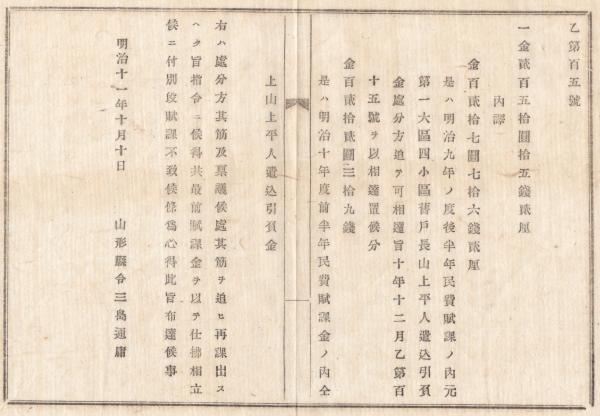 乙第百五號
一金貳百五拾圓拾五錢貳厘
內譯
金百貳拾七圓七拾六錢貳厘
是ハ明治九年ノ度後半年民費賦課ノ內元
第一六區四小區舊戶長山上平人遣込引負
金處分方追テ可相達旨十年十二月乙第百
十五號ヲ以相達置候分
金百貳拾貳圓三拾九錢
是ハ明治十年度前半年民費賦課金ノ內仝
上山上平人遣込引負金
右ハ處分方其筋及稟議候處其筋ヲ追ヒ再課出ス
ヘキ旨指令ニ候得共最前賦課金ヲ以テ仕拂相立
候ニ付別段賦課不致候條爲心得此旨布達候事
明治十一年十月十日
山形縣令三島通庸